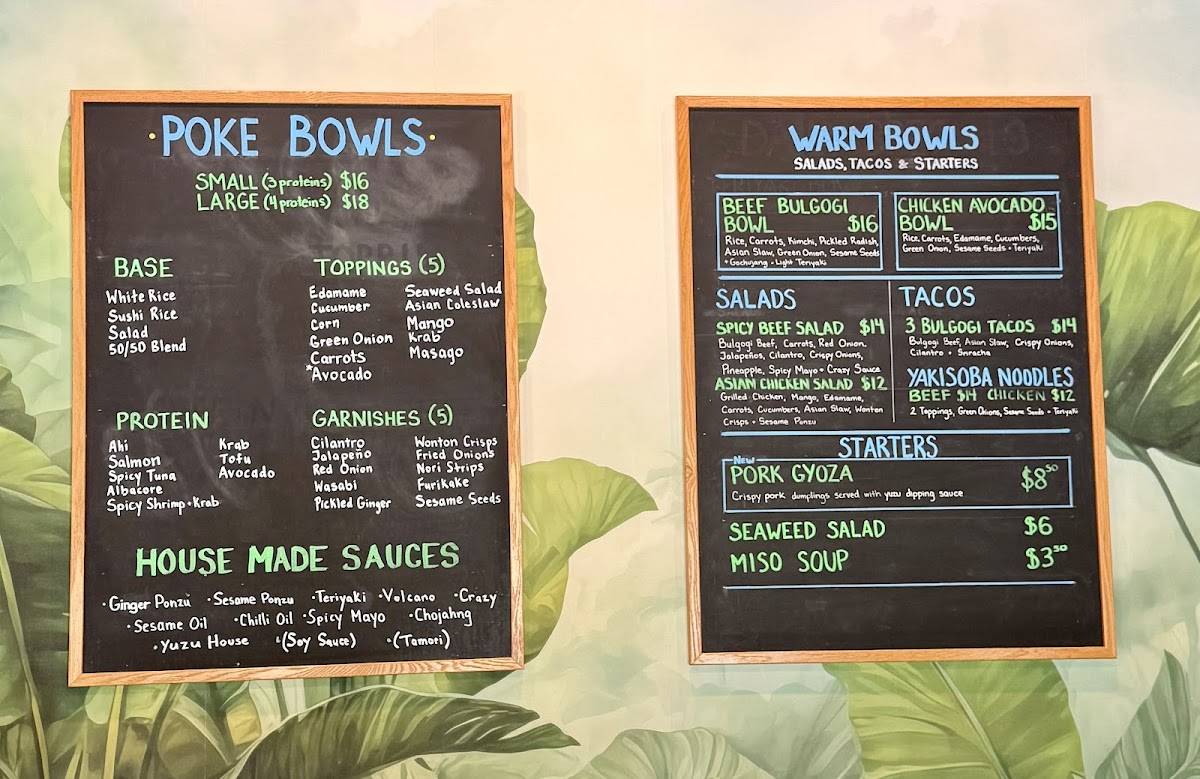 ·POKE BOWLS·
SMALL (3 proteins) $16
LARGE (4 proteins) $18
BASE
White Rice
Sushi Rice
Salad
50/50 Blend
TOPPINGS (5)
Edamame
Cucumber
Corn
Green Onion
Carrots
*Avocado
Seaweed Salad
Asian Coleslaw
Mango
Krab
Masago
PROTEIN
Ahi
Salmon
Spicy Tuna
Albacore
Spicy Shrimp + Krab
Krab
Tofu
Avocado
GARNISHES (5)
Cilantro
Jalapeño
Red Onion
Wasabi
Pickled Ginger
Wonton Crisps
Fried Onions
Nori Strips
Furikake
Sesame Seeds
HOUSE MADE SAUCES
·Ginger Ponzu ·Sesame Ponzu ·Teriyaki ·Volcano ·Crazy
·Sesame Oil ·Chilli Oil ·Spicy Mayo ·Chojahng
·Yuzu House ·(Soy Sauce) ·(Tamari)
WARM BOWLS
SALADS, TACOS & STARTERS
BEEF BULGOGI
BOWL $16
Rice, Carrots, Kimchi, Pickled Radish,
Asian Slaw, Green Onion, Sesame Seeds
+ Gochujang + Light Teriyaki
CHICKEN AVOCADO
BOWL $15
Rice, Carrots, Edamame, Cucumbers,
Green Onion, Sesame Seeds + Teriyaki
SALADS
SPICY BEEF SALAD $14
Bulgogi Beef, Carrots, Red Onion,
Jalapeños, Cilantro, Crispy Onions,
Pineapple, Spicy Mayo + Crazy Sauce
ASIAN CHICKEN SALAD $12
Grilled Chicken, Mango, Edamame,
Carrots, Cucumbers, Asian Slaw, Wonton
Crisps + Sesame Ponzu
TACOS
3 BULGOGI TACOS $14
Bulgogi Beef, Asian Slaw, Crispy Onions,
Cilantro + Sriracha
YAKISOBA NOODLES
BEEF $14 CHICKEN $12
2 Toppings, Green Onions, Sesame Seeds + Teriyaki
STARTERS
New
PORK GYOZA $8.50
Crispy pork dumplings served with yuzu dipping sauce
SEAWEED SALAD $6
MISO SOUP $3.50